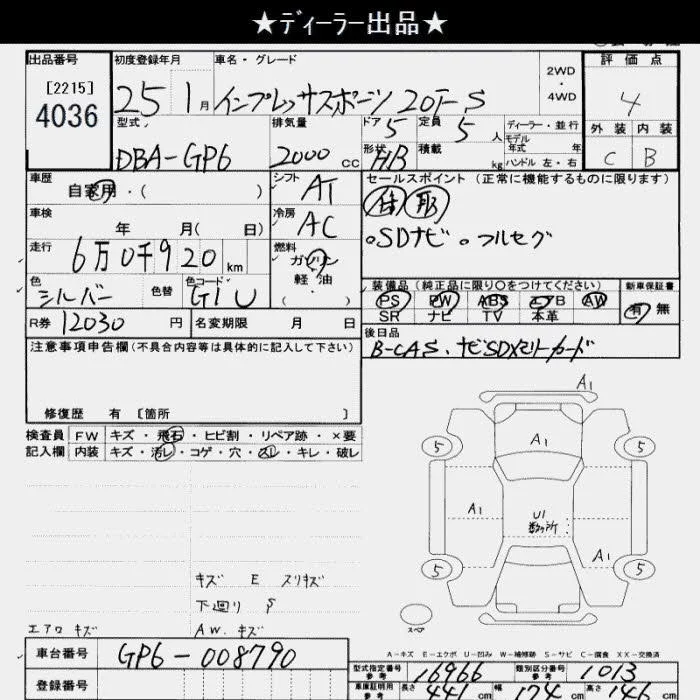 ★ディーラー出品★
出品番号 初度登録年月 車名・グレード 評価点
[2215] 4036
25 1月 インプレッサスポーツ 20i-S
2WD
4WD
4
型式 排気量 ドア 5 定員 5 人 ディーラー・並行 外装 内装
DBA-GP6 2000 cc
形状 H/B 積載 kg
モデル年式 年
ハンドル 左・右
C B
車歴 自家用・( ) シフト AT
セールスポイント (正常に機能するものに限ります)
車検 年 月( 日) 冷房 AC
・SDナビ ・フルセグ
走行 6万0千920km 燃料 ガソリン 軽油 ( )
色 シルバー 色替 色コード G1U
装備品(純正品に限り○をつけてください) 新車保証書
PS PW ABS エアB AW
SR ナビ TV 本革
有 無
R券 12030 円 名変期限 月 日
後日品
B-CAS、ナビSDメモリーカード
注意事項申告欄(不具合内容等は具体的に記入して下さい)
修復歴 有 [箇所 ]
検査員 FW キズ・飛石・ヒビ割・リペア跡・×要
記入欄 内装 キズ・汚レ・コゲ・穴・スレ・キレ・破レ
A1
5 A1 5
A1 U1 数ヶ所
A1
5 5
スペア
キズ E スリキズ
下廻り S
エアロ キズ AW.キズ
A-キズ E-エクボ U-凹み W-補修跡 S-サビ C-腐食 XX-交換済
車台番号 GP6-008790
型式指定番号 参考 16966 類別区分番号 参考 1013
登録番号
車庫証明用 参考 長さ 441 cm 幅 174 cm 高さ 146 cm